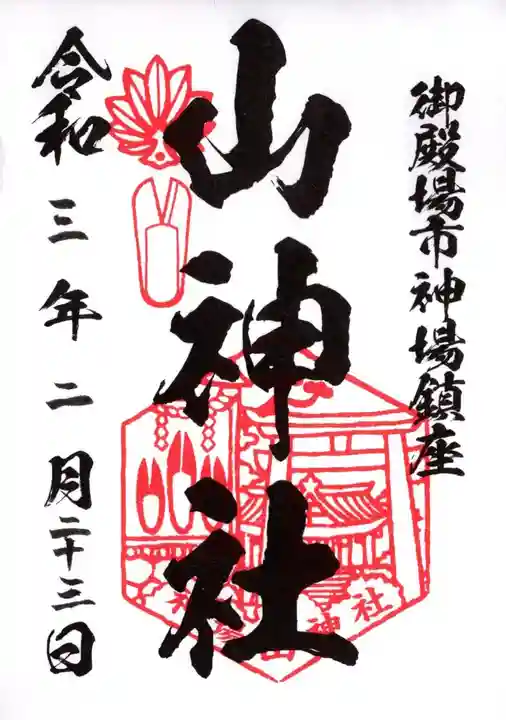 御殿場市神場鎮座
山神社
令和三年二月二十三日
山神社